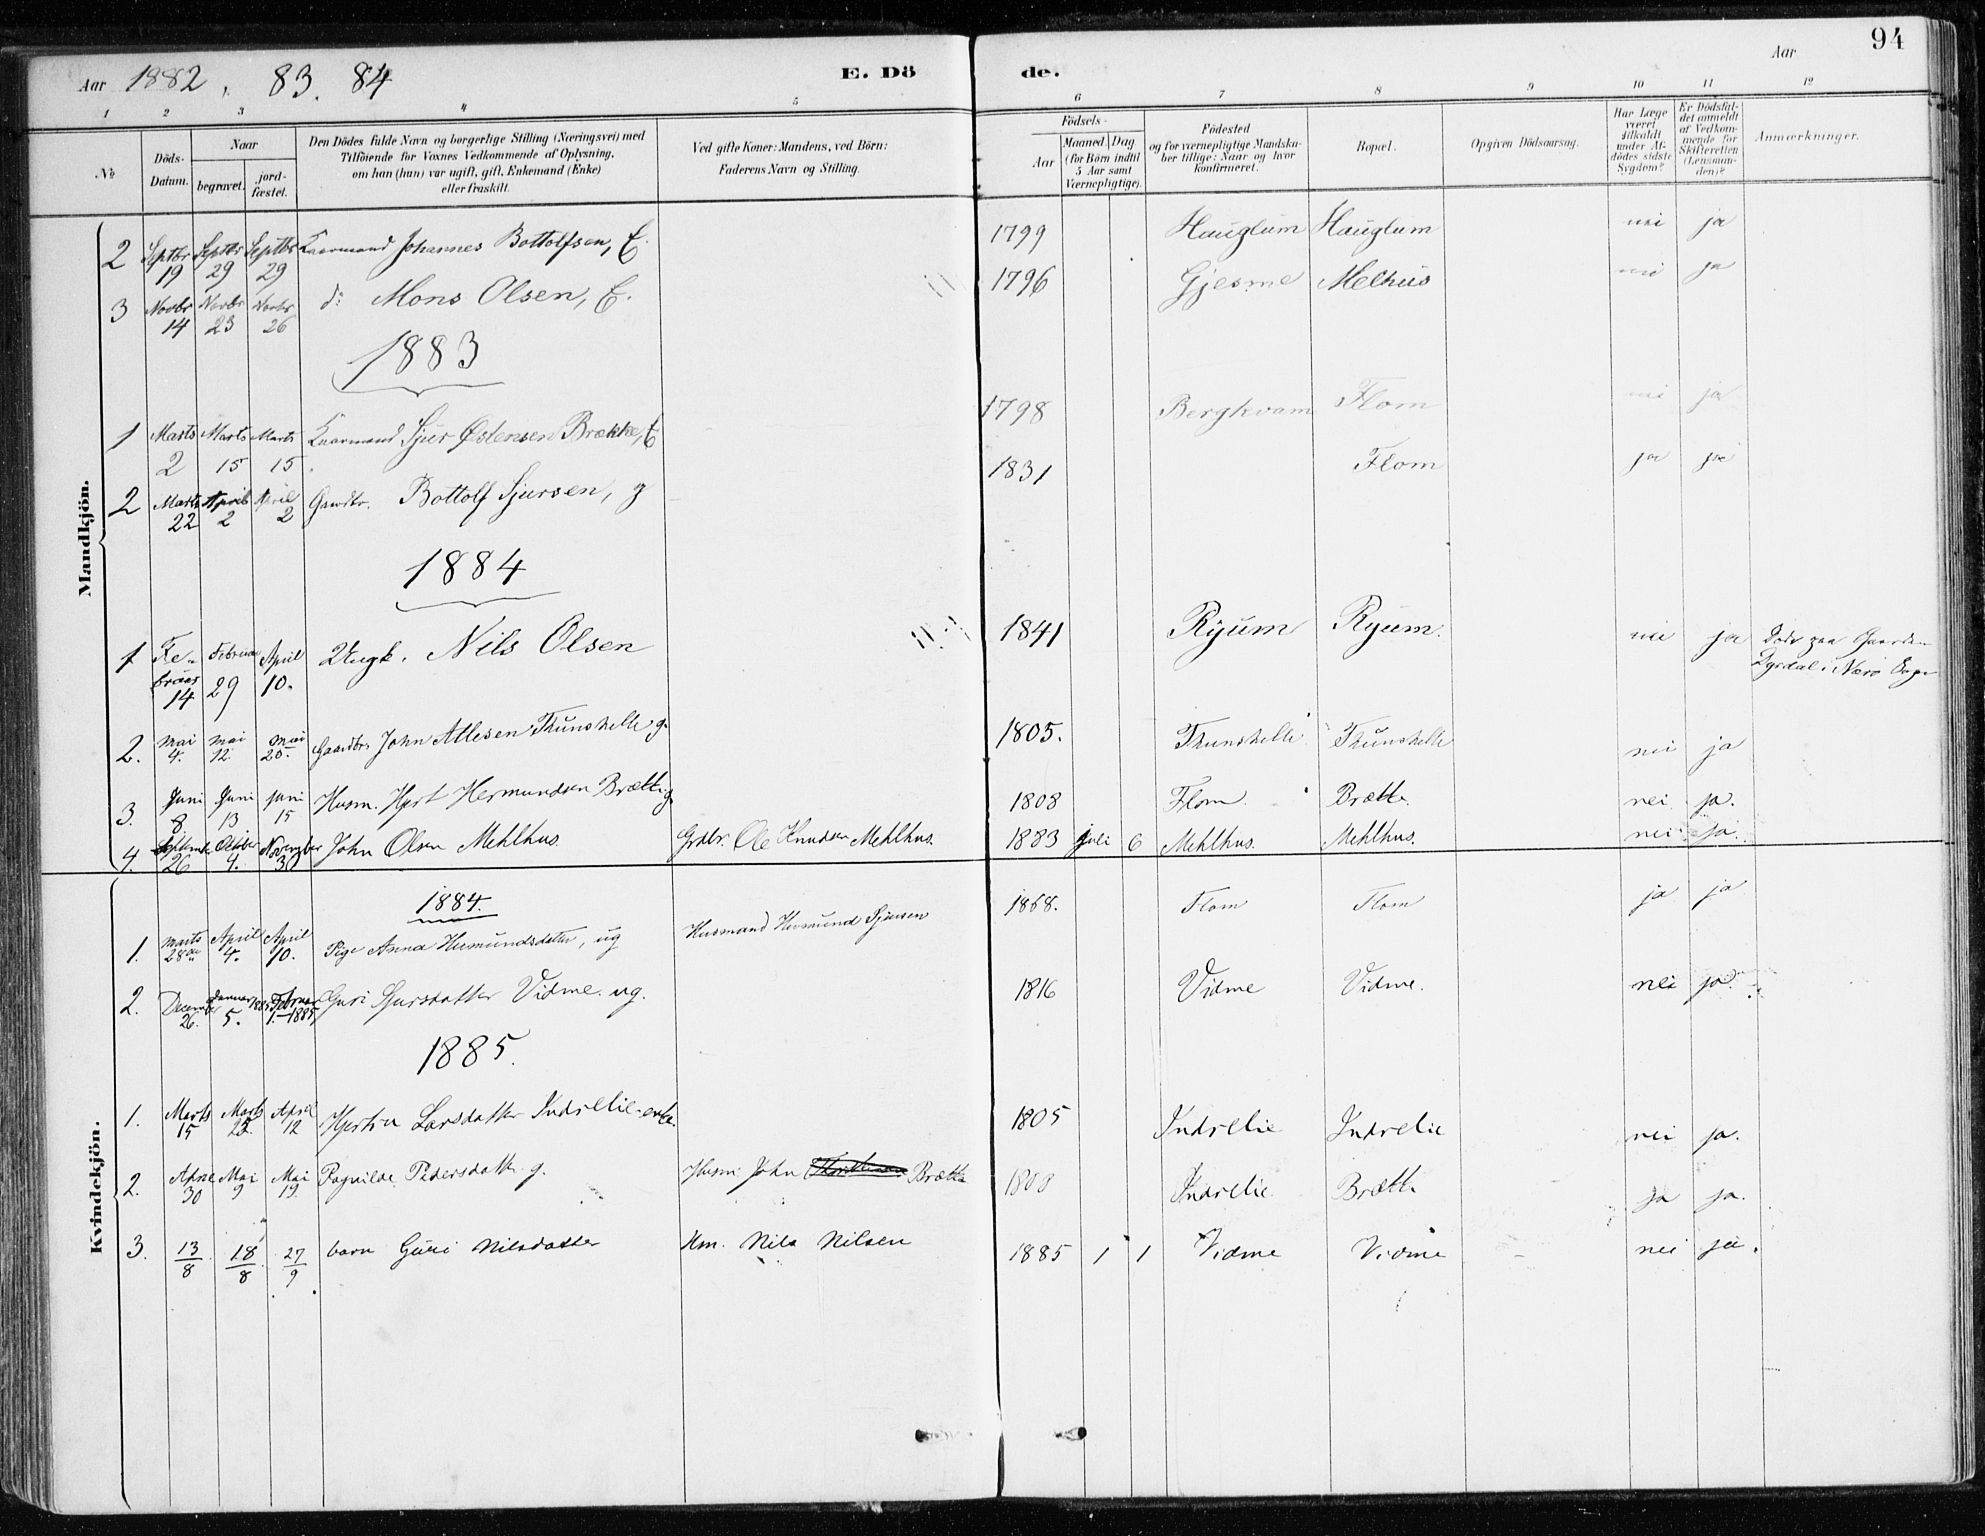 Aar 1882, 83. 84 E. Dö de. Aar 94
1 2 3 4 5 6 7 8 9 10 11 12
№ Döds-Datum. Naar begravet. jordfæstet. Den Dödes fulde Navn og borgerlige Stilling (Næringsvei) med Tilföiende for Voxnes Vedkommende af Oplysning, om han (hun) var ugift, gift, Enkemand (Enke) eller fraskilt. Ved gifte Koner: Mandens, ved Börn: Faderens Navn og Stilling. Födsels- Aar Maaned Dag (for Börn indtil 5 Aar samt Værnepligtige). Födested og for værnepligtige Mandskaber tillige: Naar og hvor konfirmeret. Bopæl. Opgiven Dödsaarsag. Har Læge været tilkaldt under Afdödes sidste Sygdom? Er Dödsfaldet anmeldt af Vedkommende for Skifteretten (Lensmanden)? Anmærkninger.
Mandkjön.
2 Septbr 19 Septbr 29 Septbr 29 Kaarmand Johannes Bottolfsen, E. 1799 Hauglum Hauglum nei ja
3 Novbr 14 Novbr 23 Novbr 26 do Mons Olsen, E. 1796 Gjesme Melhus nei ja
1883
1 Marts 2 Marts 15 Marts 15 Kaarmand Sjur Østensen Brække, E 1798 Bergkvam Flom nei ja
2 Marts 22 April 2 April 2 Gaardbr. Bottolf Sjursen, g 1831 Flom ja ja
1884
1 Februar 14 Februar 29 April 10. Ungk. Nils Olsen 1841 Ryum Ryum. nei ja Døde paa Gaarden Dyrdal i Nærö
2. Mai 4. Mai 12. Mai 25. Gaardbr. John Atlesen Thunshelle g. 1805. Thunshelle Thunshelle nei ja
3. Juni 8. Juni 13 Juni 15 Husm. Hermundsen Brætte g 1808 Flom. Brætte. nei ja.
4. Septembr 26 October 4. November 30 John Olsen Mehlhus. Grdbr. Ole Knudsen Mehlhus. 1883 Juli 6 Mehlhus. Mehlhus. nei ja.
Kvindekjön.
1884.
1. Marts 28de April 4. April 10. Pige Anna Hermundsdatter, ug Husmand Hermund Sjursen 1868. Flom Flom ja ja
2. December 26. Januar 1885 5. Februar 1. 1885 Guri Sjursdatter Vidme. ug. 1816 Vidme Vidme. nei ja.
1885.
1. Marts 15 Marts 22. April 12 Larsdatter Indrelie enke. 1805 Indrelie Indrelie nei ja.
2. April 30 Mai 9 Mai 19. Ragnilde Pedersdatter g. Husm. John Brætte 1808 Indrelie Brætte ja ja.
3. 13/8 18/8 27/9 barn Guri Nilsdatter Hm. Nils Nilsen 1885 1 1 Vidme Vidme nei ja.